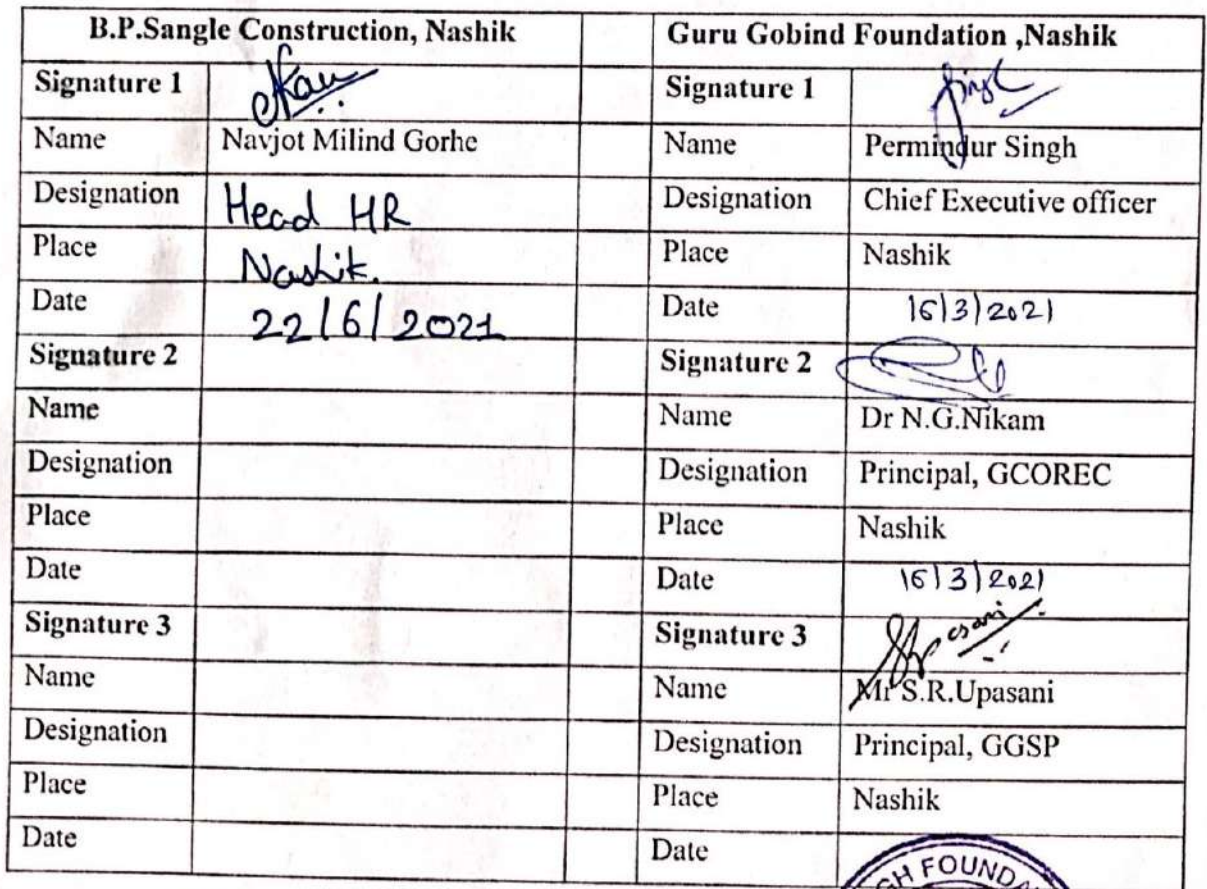 B.P.Sangle Construction, Nashik Guru Gobind Foundation ,Nashik
Signature 1 Signature 1
Name Navjot Milind Gorhe Name Permindur Singh
Designation Head HR Designation Chief Executive officer
Place Nashik. Place Nashik
Date 22/6/2021 Date 16/3/2021
Signature 2 Signature 2
Name Name Dr N.G.Nikam
Designation Designation Principal, GCOREC
Place Place Nashik
Date Date 16/3/2021
Signature 3 Signature 3
Name Name Mr S.R.Upasani
Designation Designation Principal, GGSP
Place Place Nashik
Date Date